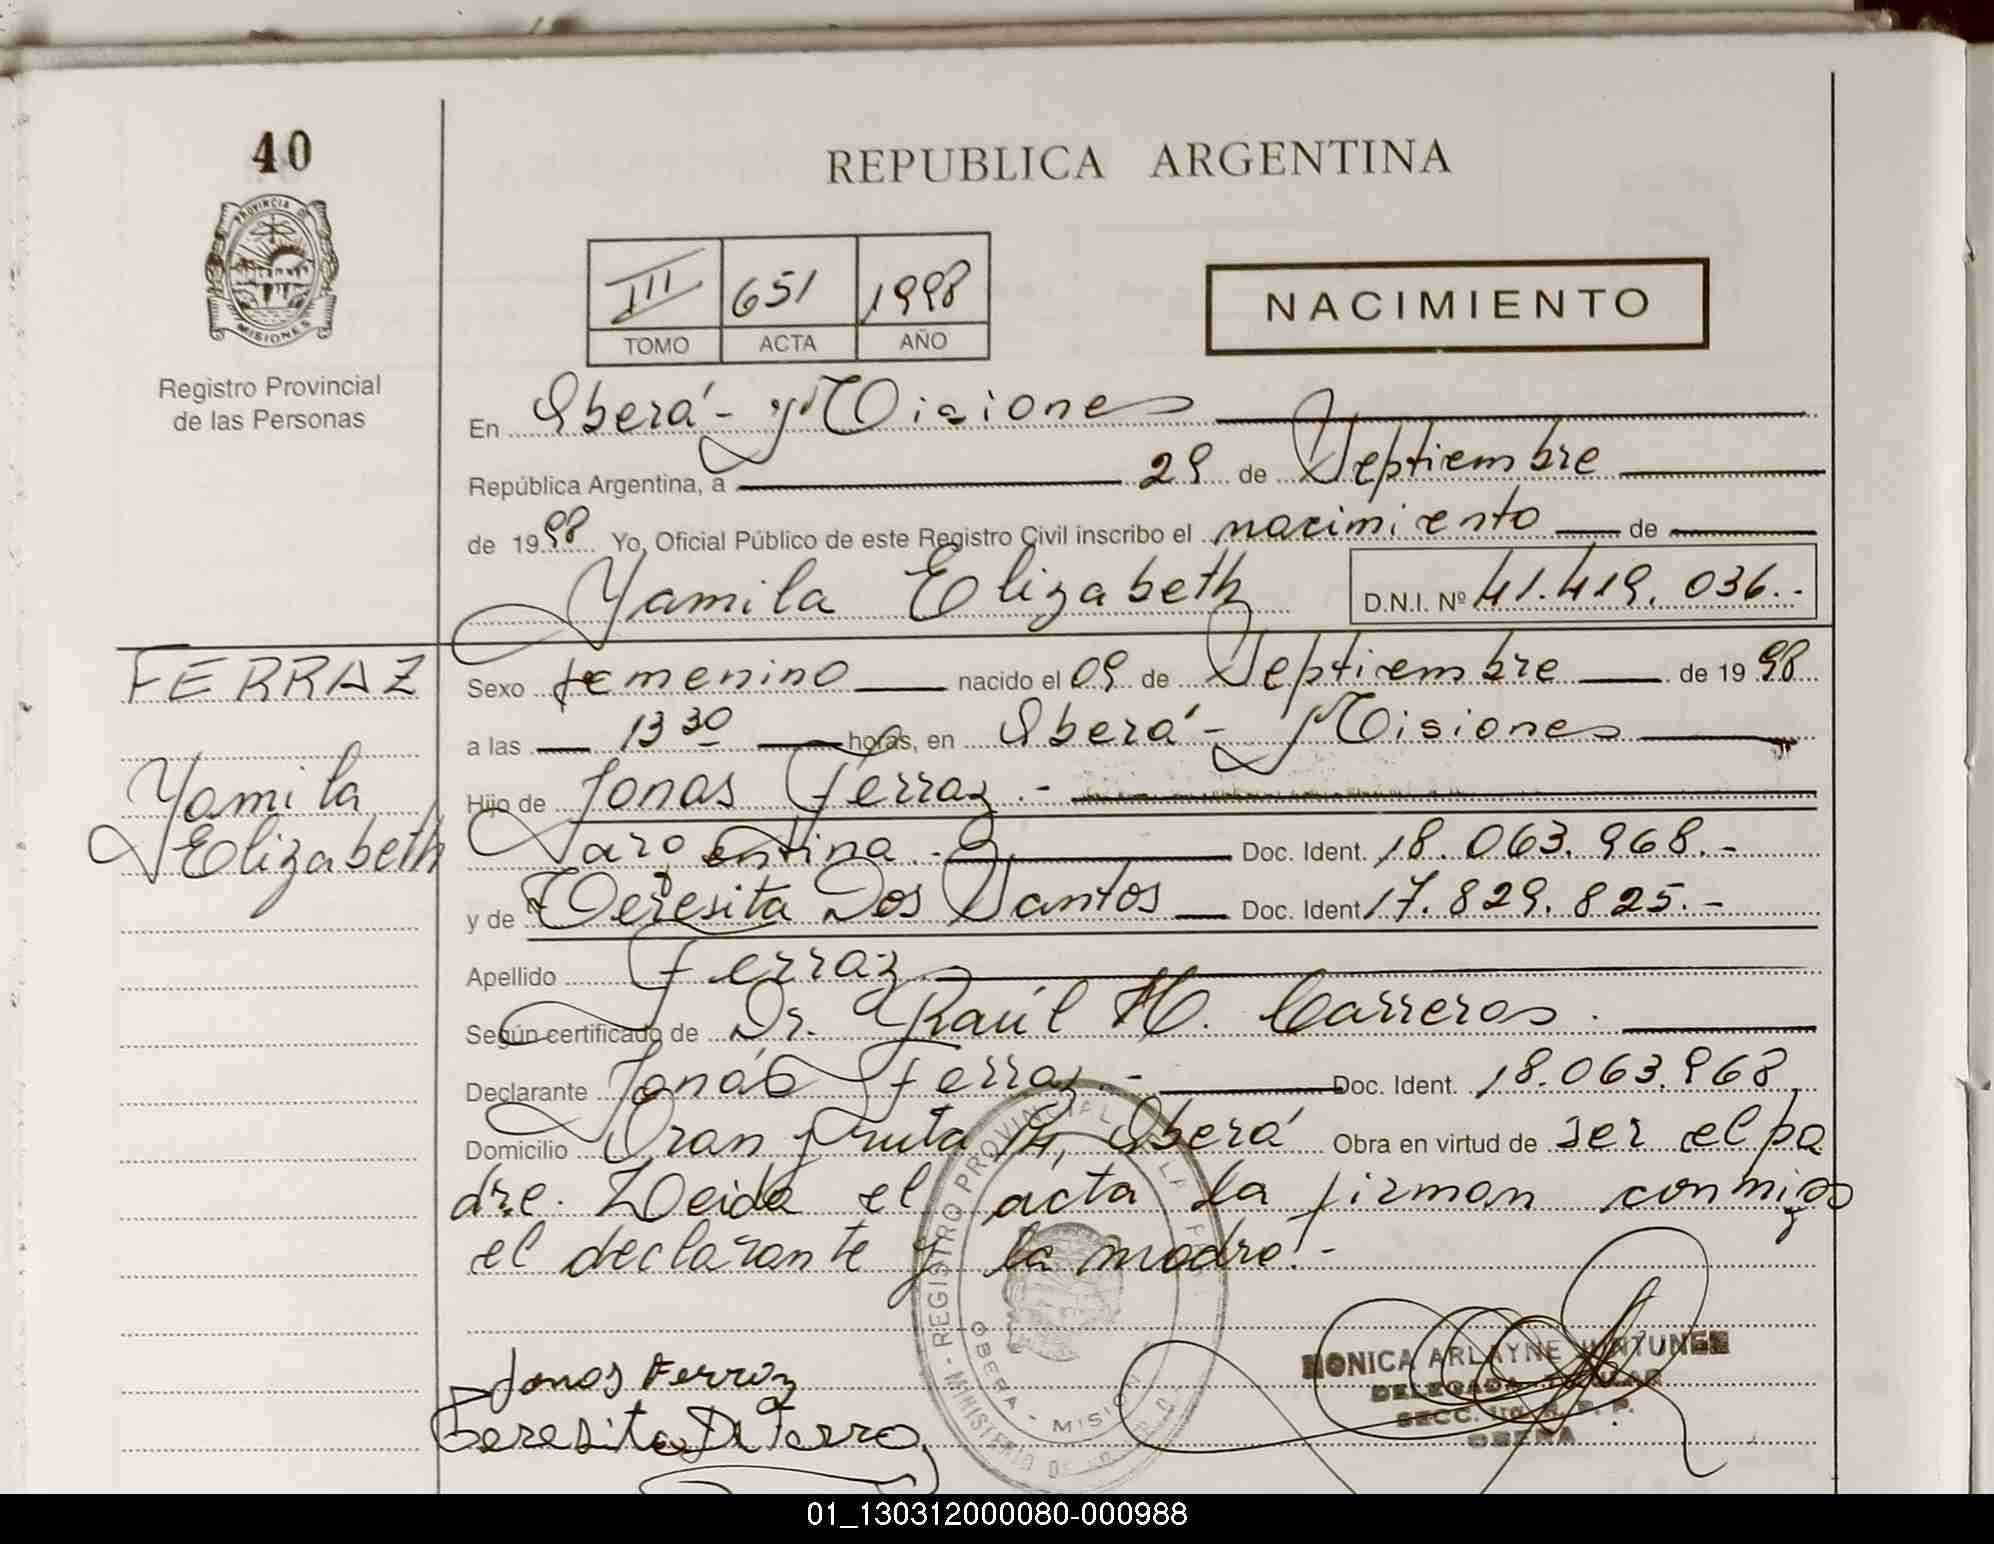 40
REPUBLICA ARGENTINA
PROVINCIA D
MISIONES
Registro Provincial
de las Personas
III 651 1998
TOMO ACTA AÑO
NACIMIENTO
En Oberá - Misiones
República Argentina, a 29 de Septiembre
de 1998 Yo, Oficial Público de este Registro Civil inscribo el nacimiento de
Yamila Elizabeth D.N.I. Nº 41.419.036.-
FERRAZ
Yamila
Elizabeth
Sexo femenino nacido el 09 de Septiembre de 1998
a las 13 30 horas, en Oberá - Misiones
Hijo de Jonas Ferraz.-
argentina.- Doc. Ident. 18.063.968.-
y de Teresita Dos Santos Doc. Ident 17.829.825.-
Apellido Ferraz
Según certificado de Dr. Raúl H. Carreros.
Declarante Jonás Ferraz.- Doc. Ident. 18.063.968
Domicilio Gran ruta 14, Oberá Obra en virtud de ser el pa
dre. Leida el acta la firman conmigo
el declarante y la madre.-
Jonas Ferraz
Teresita D. Ferraz
REGISTRO PROVINCIAL DE LA
OBERA - MISI
MINISTERIO DE
MONICA ARLAYNE
DELEGADA TITULAR
SECC. R. P. P.
OBERA
01_130312000080-000988